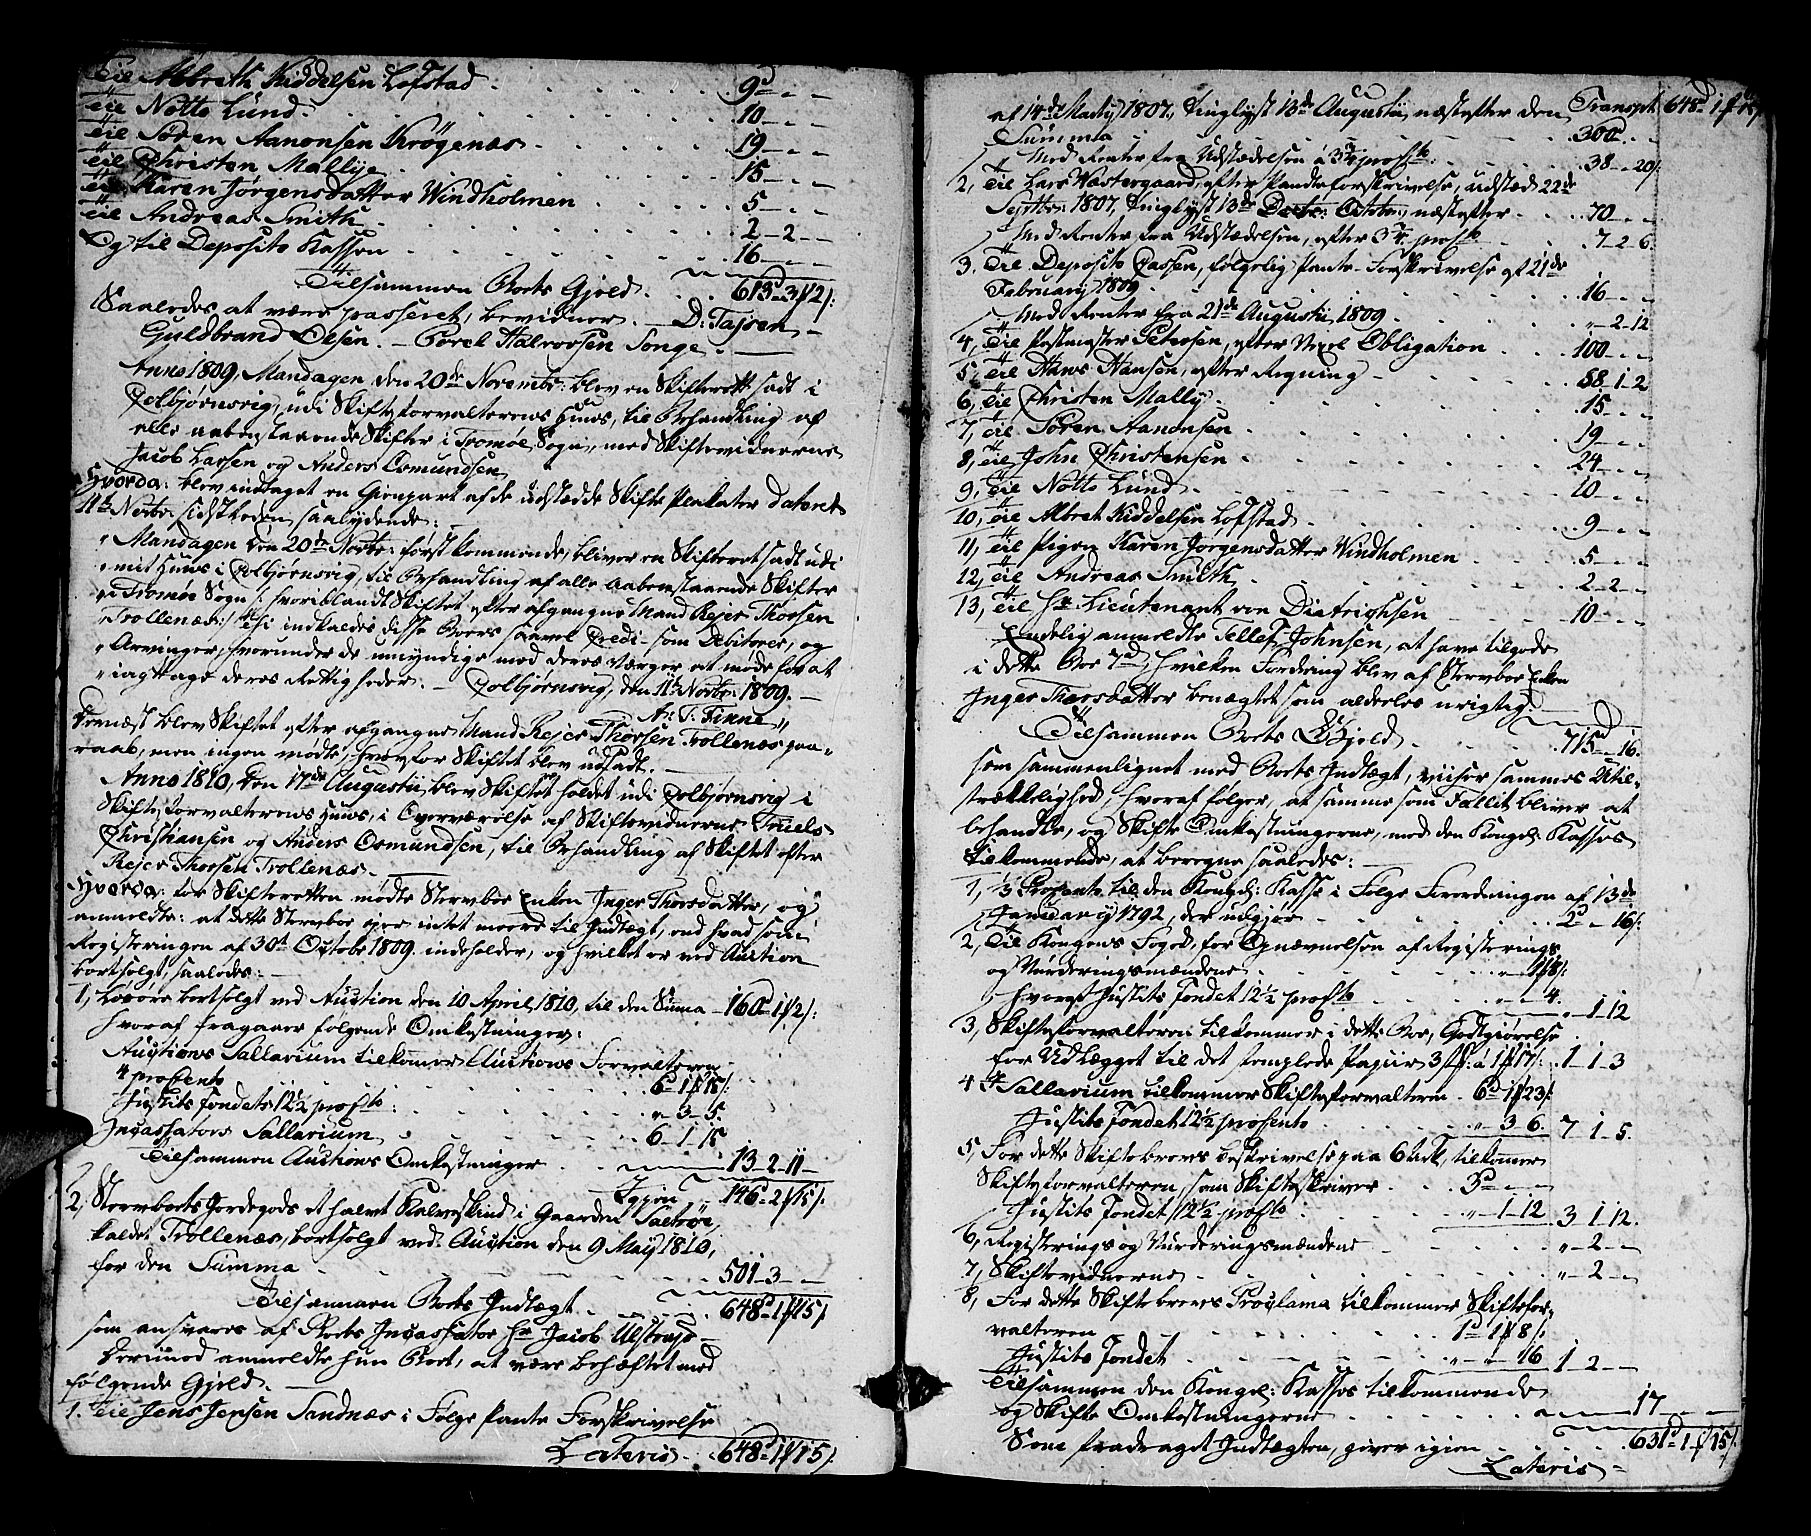 Til Albreth Kiddelsen Lofstad . . . 9d - -
Til Notto Lund . . . 10 - - -
Til Søren Aanonsen Krøgenæs . . . 19 - - -
Til Christen Mallye . . . 15 - - -
Til Karen Jørgensdatter Windholmen . . . 5 - - -
Til Andreas Smith . . . 2 - 2 - -
Og til Deposito Kassen . . . 16 - - -
Tilsammen Boets Gjeld . . . 613d 3 # 2 /:
Saaledes at være passeret, bevidner. D: Tajsen
Guldbrand Olsen. - Torel Halvorsen Songe.
Anno 1809, Mandagen, den 20de Novembr: blev en Skifteret sadt i
Colbjørnsvig, udi Skifteforvalterens Huus, til Behandling af
alle aabenstaaende Skifter i Tromøe Sogn, med Skiftevidnerne
Jacob Larsen og Anders Osmundsen
Hvorda: blev indtaget en Gienpart af de udstædde Skifte Plakater dateret
11te Novbr: sidstleden, saalydende:
"Mandagen den 20de Novbr: førstkommende, bliver en Skifteret sadt udi
"mit Huus i Colbjørnsvig, til Behandling af alle aabenstaaende Skifter
"i Tromøe Sogn /: hvoriblandt Skiftet efter afgangne Mand Rejer Thorsen
"Trollenæs:/ Thi indkaldes disse Boers saavel Credi- som Debitorer, og
"Arvinger, hvorunder de umyndige med deres Værger at møde for at
"iagttage deres Rettigheder. - Colbjørnsvig, den 11te Novbr: 1809. -
Ar: T: Finne"
Dernæst blev Skiftet efter afgangne Mand Rejer Thorsen Trollenæs paa-
raab, men ingen mødte, hvorfor Skiftet blev udsadt.
Anno 1810, den 17de Augustii, blev Skiftet holdet udi Colbjørnsvig i
Skifteforvalterens Huus, i Overværelse af Skiftevidnerne Truels
Christiansen og Anders Osmundsen, til Behandling af Skiftet efter
Rejer Thorsen Trollenæs.
Hvorda: for Skifteretten mødte Stervboe Enken Inger Thorsdatter, og
anmeldte: at dette Stervboe ejer intet meere til Indtægt, end hvad som
Registeringen af 30te Octobr 1809. indeholder, og hvilket er ved Auction
bortsolgt, saaledes:
1, Løsøre bortsolgt ved Auction den 10 April 1810, til den Suma - 160d 1 # 2 /:
hvoraf fragaaer følgende Omkostninger:
Auctions Sallarium tilkommer Auctions Forvalteren
4 procento . . . 6d 1 # 15 /:
Justits Fondets 12½ procto: . . . " - 3 - 5.
Incassators Sallarium . . . 6 - 1 - 15
Tilsammen Auctions Omkostninger . . . 13 - 2 - 11 -
Igjen . . 146d 2 # 15 /:
2, Stervboets Jordegods et halvt Kalveskind i Gaarden Saltrøe,
kaldet Trollenæs, bortsolgt ved Auction den 9 May 1810,
for den Summa . . . 501 - 3 - -
Tilsammen Boets Indtægt . . . 648d 1 # 15 /:
som ansvares af Boets Incassator Hr Jacob Ulstrup -
Derimod anmeldte hun Boet, at være behæftet med
følgende Gjeld.
1. Til Jens Jensen Sandnæs i Følge Pante Forskrivelse
Lateris . 648d 1 # 15 /:
af 14de Martij 1807, Tinglyst 13de Augustii, næstefter den Transpt. 648d 1 # 15 /:
Summa . . . 300d . .
Med Renter fra Udstædelsen á 3¾ procto . . . 38 - - 20 /:
2, Til Lars Wæstergaard, efter Pandteforskrivelse, udstæd 22de
Septbr: 1807, Tinglyst 13de Octobr:, næstefter . . 70 - - -
Med Renter fra Udstædelsen, efter 3¾ procto . . 7 - 2 - 6.
3. Til Deposito Cassen, følgelig Pante-Forskrivelse af 21de
Februarij 1809 . . . 16 - - -
Med Renter fra 21de Augustii 1809 . . . " - 2 - 12
4, Til Postmester Petersen, efter Vexel Obligation . . . 100 - - -
5, Til Hans Hansen, efter Regning . . . 58 - 1 - 2
6, Til Christen Mally . . . 15 - - -
7, Til Søren Aanonsen . . . 19 - - -
8, Til John Christensen . . . 24 - - -
9, Til Notto Lund . . . 10 - - -
10, Til Albret Kiddelsen Lofstad . . . 9 - - -
11, Til Pigen Karen Jørgensdatter Windholmen . . . 5 - - -
12, Til Andreas Smith . . . 2 - 2 - -
13, Til Hr Lieutenant von Diatrighsen . . . 10 - - -
Endelig anmeldte Tellef Johnsen, at have tilgode
i dette Boe 7d, hvilken Fordring blev af Stervboe Enken
Inger Thorsdatter benægtet som aldeles urigtig.
Tilsammen Boets Gjeld . . . 715d - 16.
som sammenlignet med Boets Indtægt, viiser sammes Util-
strækkelighed, hvoraf følger, at samme som Fallit bliver at
behandle, og Skifte Omkostningerne, med den Kongel: Kasses
tilkommende, at beregne saaledes:
1, ⅓ Procento til den Kongel: Kasse i Følge Forordningen af 13de
Januarij 1792, der udgjør . . . 2d - 16 /:
2, Til Kongens Foged, for Opnævnelsen af Registerings
og Vurderingsmændene . . . " 1 # 8 /:
hvoraf Justits Fondet 12½ procto . . . " - " 4. " - 1 - 12
3, Skifteforvalteren tilkommer i dette Boe, Godtgiørelse
for Udlægget til det stemplede Papiir 3 # á 1 # 17 /: 1 - 1 - 3
4 Sallarium tilkommer Skifteforvalteren . 6d 1 # 23 /:
Justits Fondet 12½ procento . . . " - 3 6. 7 - 1 - 5.
5, For dette Skiftebrevs Beskrivelse paa 6 Ark, tilkommer
Skifteforvalteren, som Skifteskriver . . 3d - -
Justits Fondet 12½ procto . . . " - 1 - 12 3 1 12.
6, Registerings og Vurderingsmændene . . . " - 2 - -
7, Skiftevidnerne . . . " - 2 - -
8, For dette Skiftebrevs Proclama tilkommer Skiftefor-
valteren . . . 1d 1 # 8 /:
Justits Fondet . . . " - " - 16 1 - 2 - -
Tilsammen den Kongel: Kasses tilkommende
og Skifte Omkostningerne . . . 17 - - -
Som fradraget Indtægten, giver igien . . . 631d 1 # 15 /:
Lateris